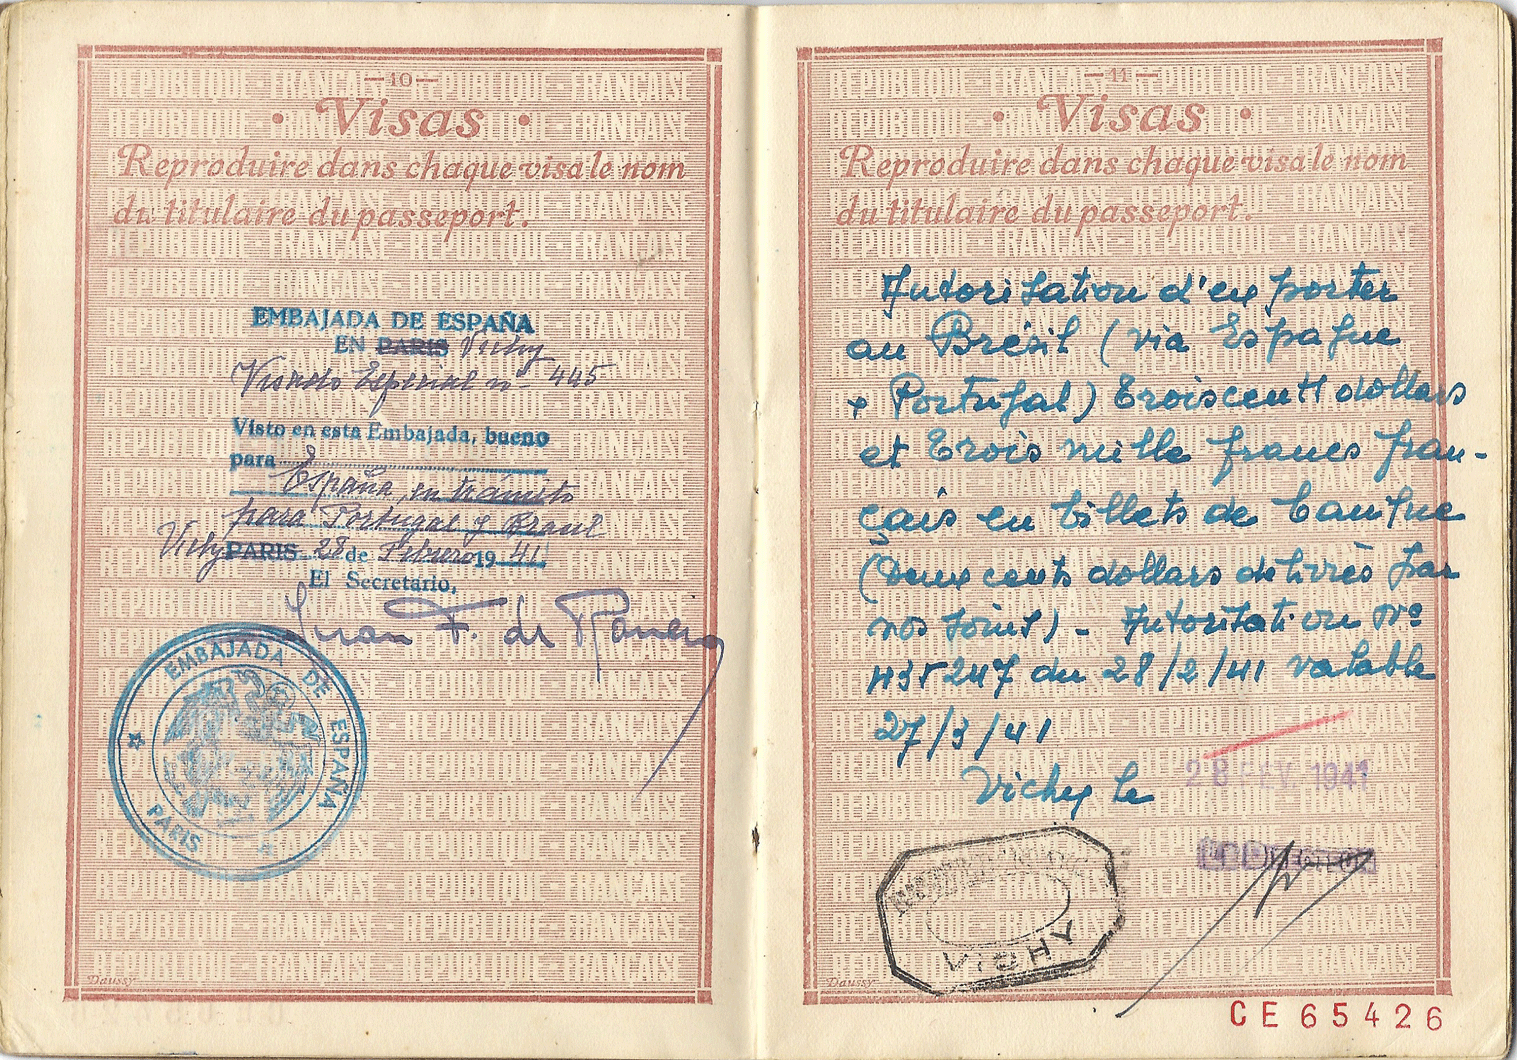 —10—
• Visas •
Reproduire dans chaque visa le nom
du titulaire du passeport.
EMBAJADA DE ESPAÑA
EN PARIS Vichy
Visado Especial nº 445
Visto en esta Embajada, bueno
para
España, en tránsito
para Portugal y Brasil
Vichy PARIS 28 de Febrero 19 41
El Secretario,
Juan F. de Ranero
EMBAJADA DE ESPAÑA
PARIS
Daussy
—11—
• Visas •
Reproduire dans chaque visa le nom
du titulaire du passeport.
Autorisation d'exporter
au Brésil (via Espagne
+ Portugal) trois cents dollars
et trois mille francs fran-
çais en billets de banque
(Deux cents dollars délivrés par
nos soins) - Autorisation Nº
du 28/2/41 valable
27/3/41
Vichy le 28 FEV. 1941
VICHY
Daussy
CE 65426